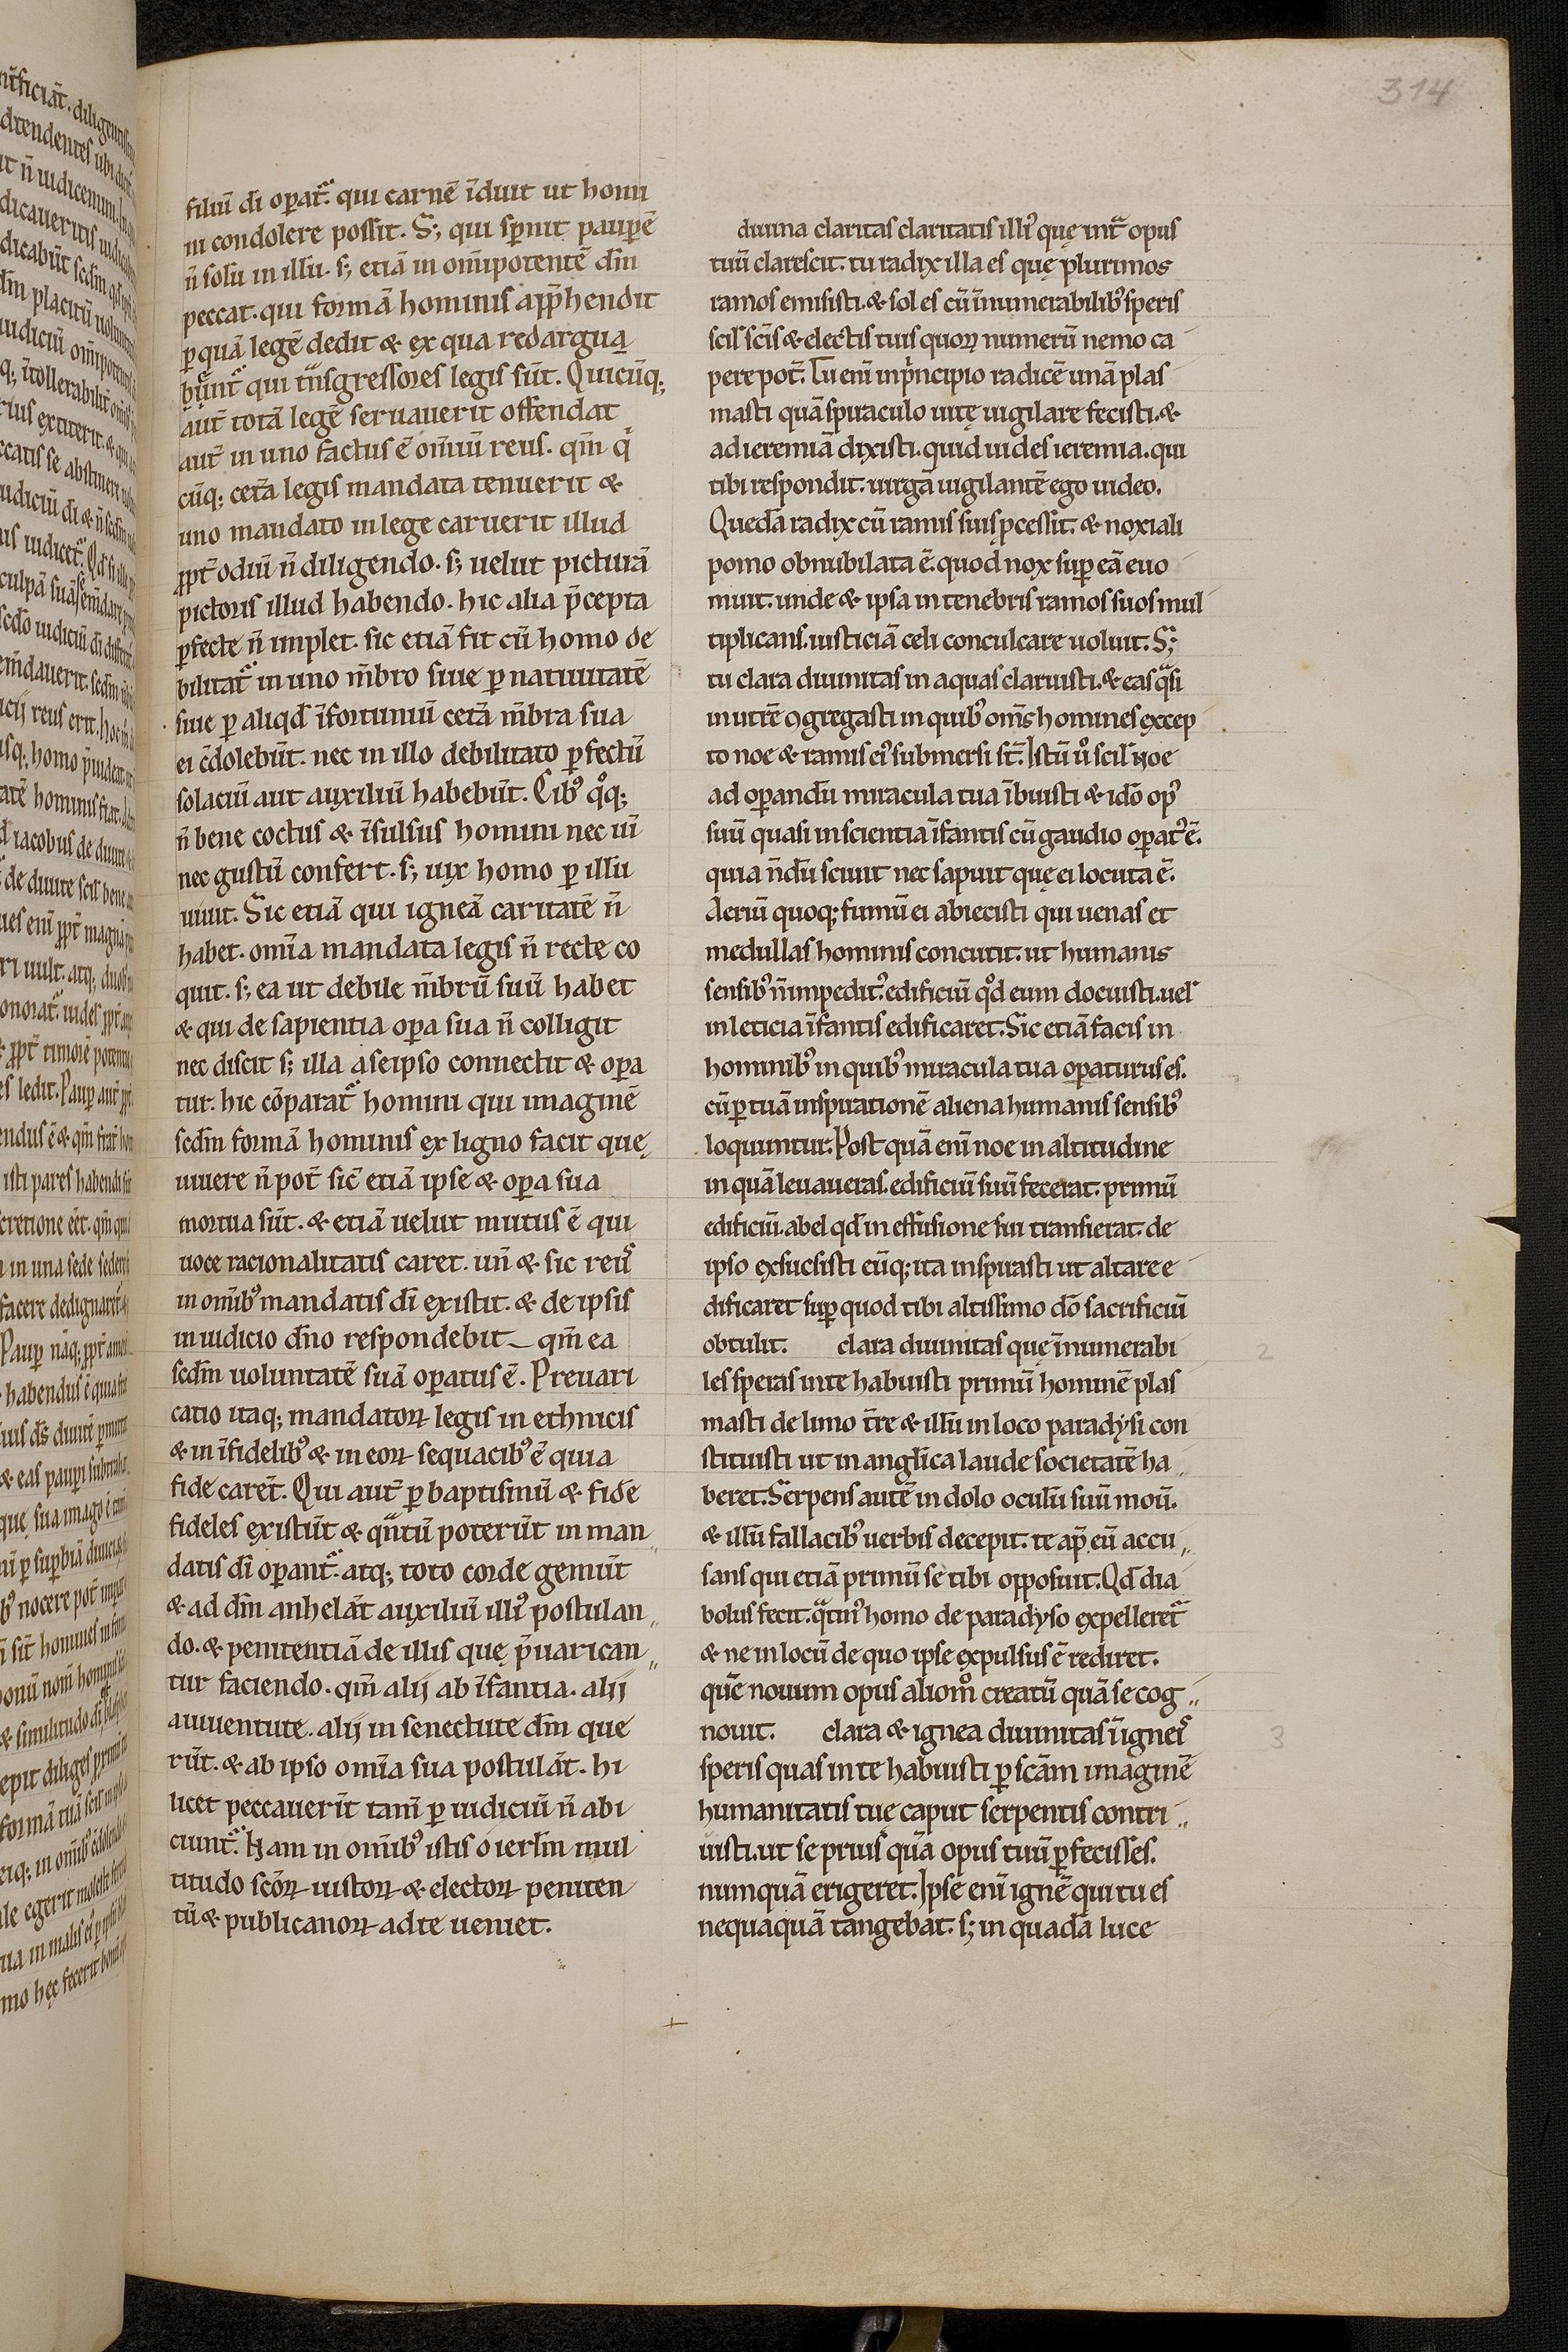 314
filiū dī oꝑat᷑. qui carnē īduit ut homi
ni condolere possit. S; qui sꝑnit pauꝑē
n̄ solū in illū. s; etiā in om̄ipotentē dm̄
peccat. qui formā hominis app̄hendit
ꝑ quā legē dedit & ex qua redargua
bunt᷑ qui tͣnsgressores legis sūt. Quicūq;
aut̄ totā legē seruauerit offendat
aut̄ in uno factus ē om̄iū reus. qm̄ qͥ
cūq; cet̄a legis mandata tenuerit &
uno mandato in lege caruerit illud
ꝓpt̄ odiū n̄ diligendo. s; uelut picturā
pictoris illud habendo. hic alia p̄cepta
ꝑfecte n̄ implet. sic etiā fit cū homo de
bilitat᷑ in uno m̄bro siue ꝑ natiuitatē
siue ꝑ aliqd̄ īfortuniū cet̄a m̄bra sua
ei c̄dolebūt. nec in illo debilitato ꝑfectū
solaciū aut auxiliū habebūt. Cibꝰ qͦq;
n̄ bene coctus & īsulsus homini nec uī
nec gustū confert. s; uix homo ꝑ illū
uiuit. Sic etiā qui igneā caritatē n̄
habet. om̄ia mandata legis n̄ recte co
quit. s; ea ut debile m̄brū suū habet
& qui de sapientia oꝑa sua n̄ colligit
nec discit s; illa aseipso connectit & oꝑa
tur. hic cōparat᷑ homini qui imaginē
scdm̄ formā hominis ex ligno facit quę
uiuere n̄ pot̄ sic̄ etiā ipse & oꝑa sua
mortua sūt. & etiā uelut mutus ē qui
uoce racionalitatis caret. un̄ & sic reuˢ
in om̄ibꝰ mandatis dī existit. & de ipsis
in iudicio dn̄o respondebit qm̄ ea
scdm̄ uoluntatē suā oꝑatus ē. Preuari
catio itaq; mandatoꝝ legis in ethnicis
& in īfidelibꝰ & in eoꝝ sequacibꝰ ē quia
fide carēt. Qui aut̄ ꝑ baptismū & fidē
fideles existūt & qͣntū poterūt in man
datis dī oꝑant᷑. atq; toto corde gemūt
& ad dm̄ anhelāt auxiliū illiꝰ postulan
do. & penitentiā de illis quę p̄uarican
tur faciendo. qm̄ alij ab īfantia. alij
a iuuentute. alij in senectute dm̄ que
rūt. & ab ipso om̄ia sua postulāt. hi
licet peccauerīt tam̄ ꝑ iudiciū n̄ abi
ciunt᷑. Nam in om̄ibꝰ istis o ierlm̄ mul
titudo sc̄oꝝ iustoꝝ & electoꝝ peniten
tū & publicanoꝝ adte ueniet.
diuina claritas claritatis illiꝰ quę int̄ opus
tuū clarescit. tu radix illa es quę plurimos
ramos emisisti. & sol es cū īnumerabilibꝰ speris
scil̄ sc̄is & electis tuis quoꝝ numerū nemo ca
pere pot̄. Tu enī inpͥncipio radicē unā plas
masti quā spiraculo uitę uigilare fecisti. &
ad ieremiā dixisti. quid uides ieremia. qui
tibi respondit. uirgā uigilantē ego uideo.
Quedā radix cū ramis suis ꝓcessit. & noxiali
pomo obnubilata ē. quod nox suꝑ eā euo
muit. unde & ipsa in tenebris ramos suos mul
tiplicans. iusticiā celi conculcare uoluit. S;
tu clara diuinitas in aquas claruisti. & eas qͣsi
in utrē ꝯgregasti in quibꝰ om̄s homines excep
to noe & ramis eiꝰ submersi st̄. Istū uͦ scil̄ noe
ad oꝑandū miracula tua ībuisti & idō opꝰ
suū quasi in scientia īfantis cū gaudio oꝑatꝰ ē.
quia n̄dū sciuit nec sapuit quę ei locuta ē.
Aeriū quoq; fumū ei abiecisti qui uenas et
medullas hominis concutit. ut humanis
sensibꝰ n̄ impeditꝰ. edificiū qͦd eum docuisti. uel̄
in leticia īfantis edificaret. Sic etiā facis in
hominibꝰ in quibꝰ miracula tua oꝑaturus es.
cū ꝑ tuā inspirationē aliena humanis sensibꝰ
loquuntur. Post quā enī noe in altitudine
in quā leuaueras. edificiū suū fecerat. primū
edificiū. abel qd̄ in effusione sui transierat. de
ipso exsuscitasti eūq; ita inspirasti ut altare e
dificaret suꝑ quod tibi altissimo dō sacrificiū
obtulit. clara diuinitas quę īnumerabi
les speras inte habuisti primū hominē plas
masti de limo tr̄e & illū in loco paradysi con
stituisti ut in angl̄ica laude societatē ha
beret. Serpens autē in dolo oculū suū mou̅.
& illū fallacibꝰ uerbis decepit. te ap̄ eū accu
sans qui etiā primū se tibi opposuit. Qd̄ dia
bolus fecit. qͣtinꝰ homo de paradyso expelleret᷑
& ne in locū de quo ipse expulsus ē rediret.
quē nouum opus aliomͦ creatū quā se cog
nouit. clara & ignea diuinitas ī igneiˢ
speris quas inte habuisti ꝑ scām imaginē
humanitatis tue caput serpentis contri
uisti. ut se prius quā opus tuū ꝑfecisses.
numquā erigeret. Ipse enī ignē qui tu es
nequaquā tangebat. s; in quadā luce
2
3